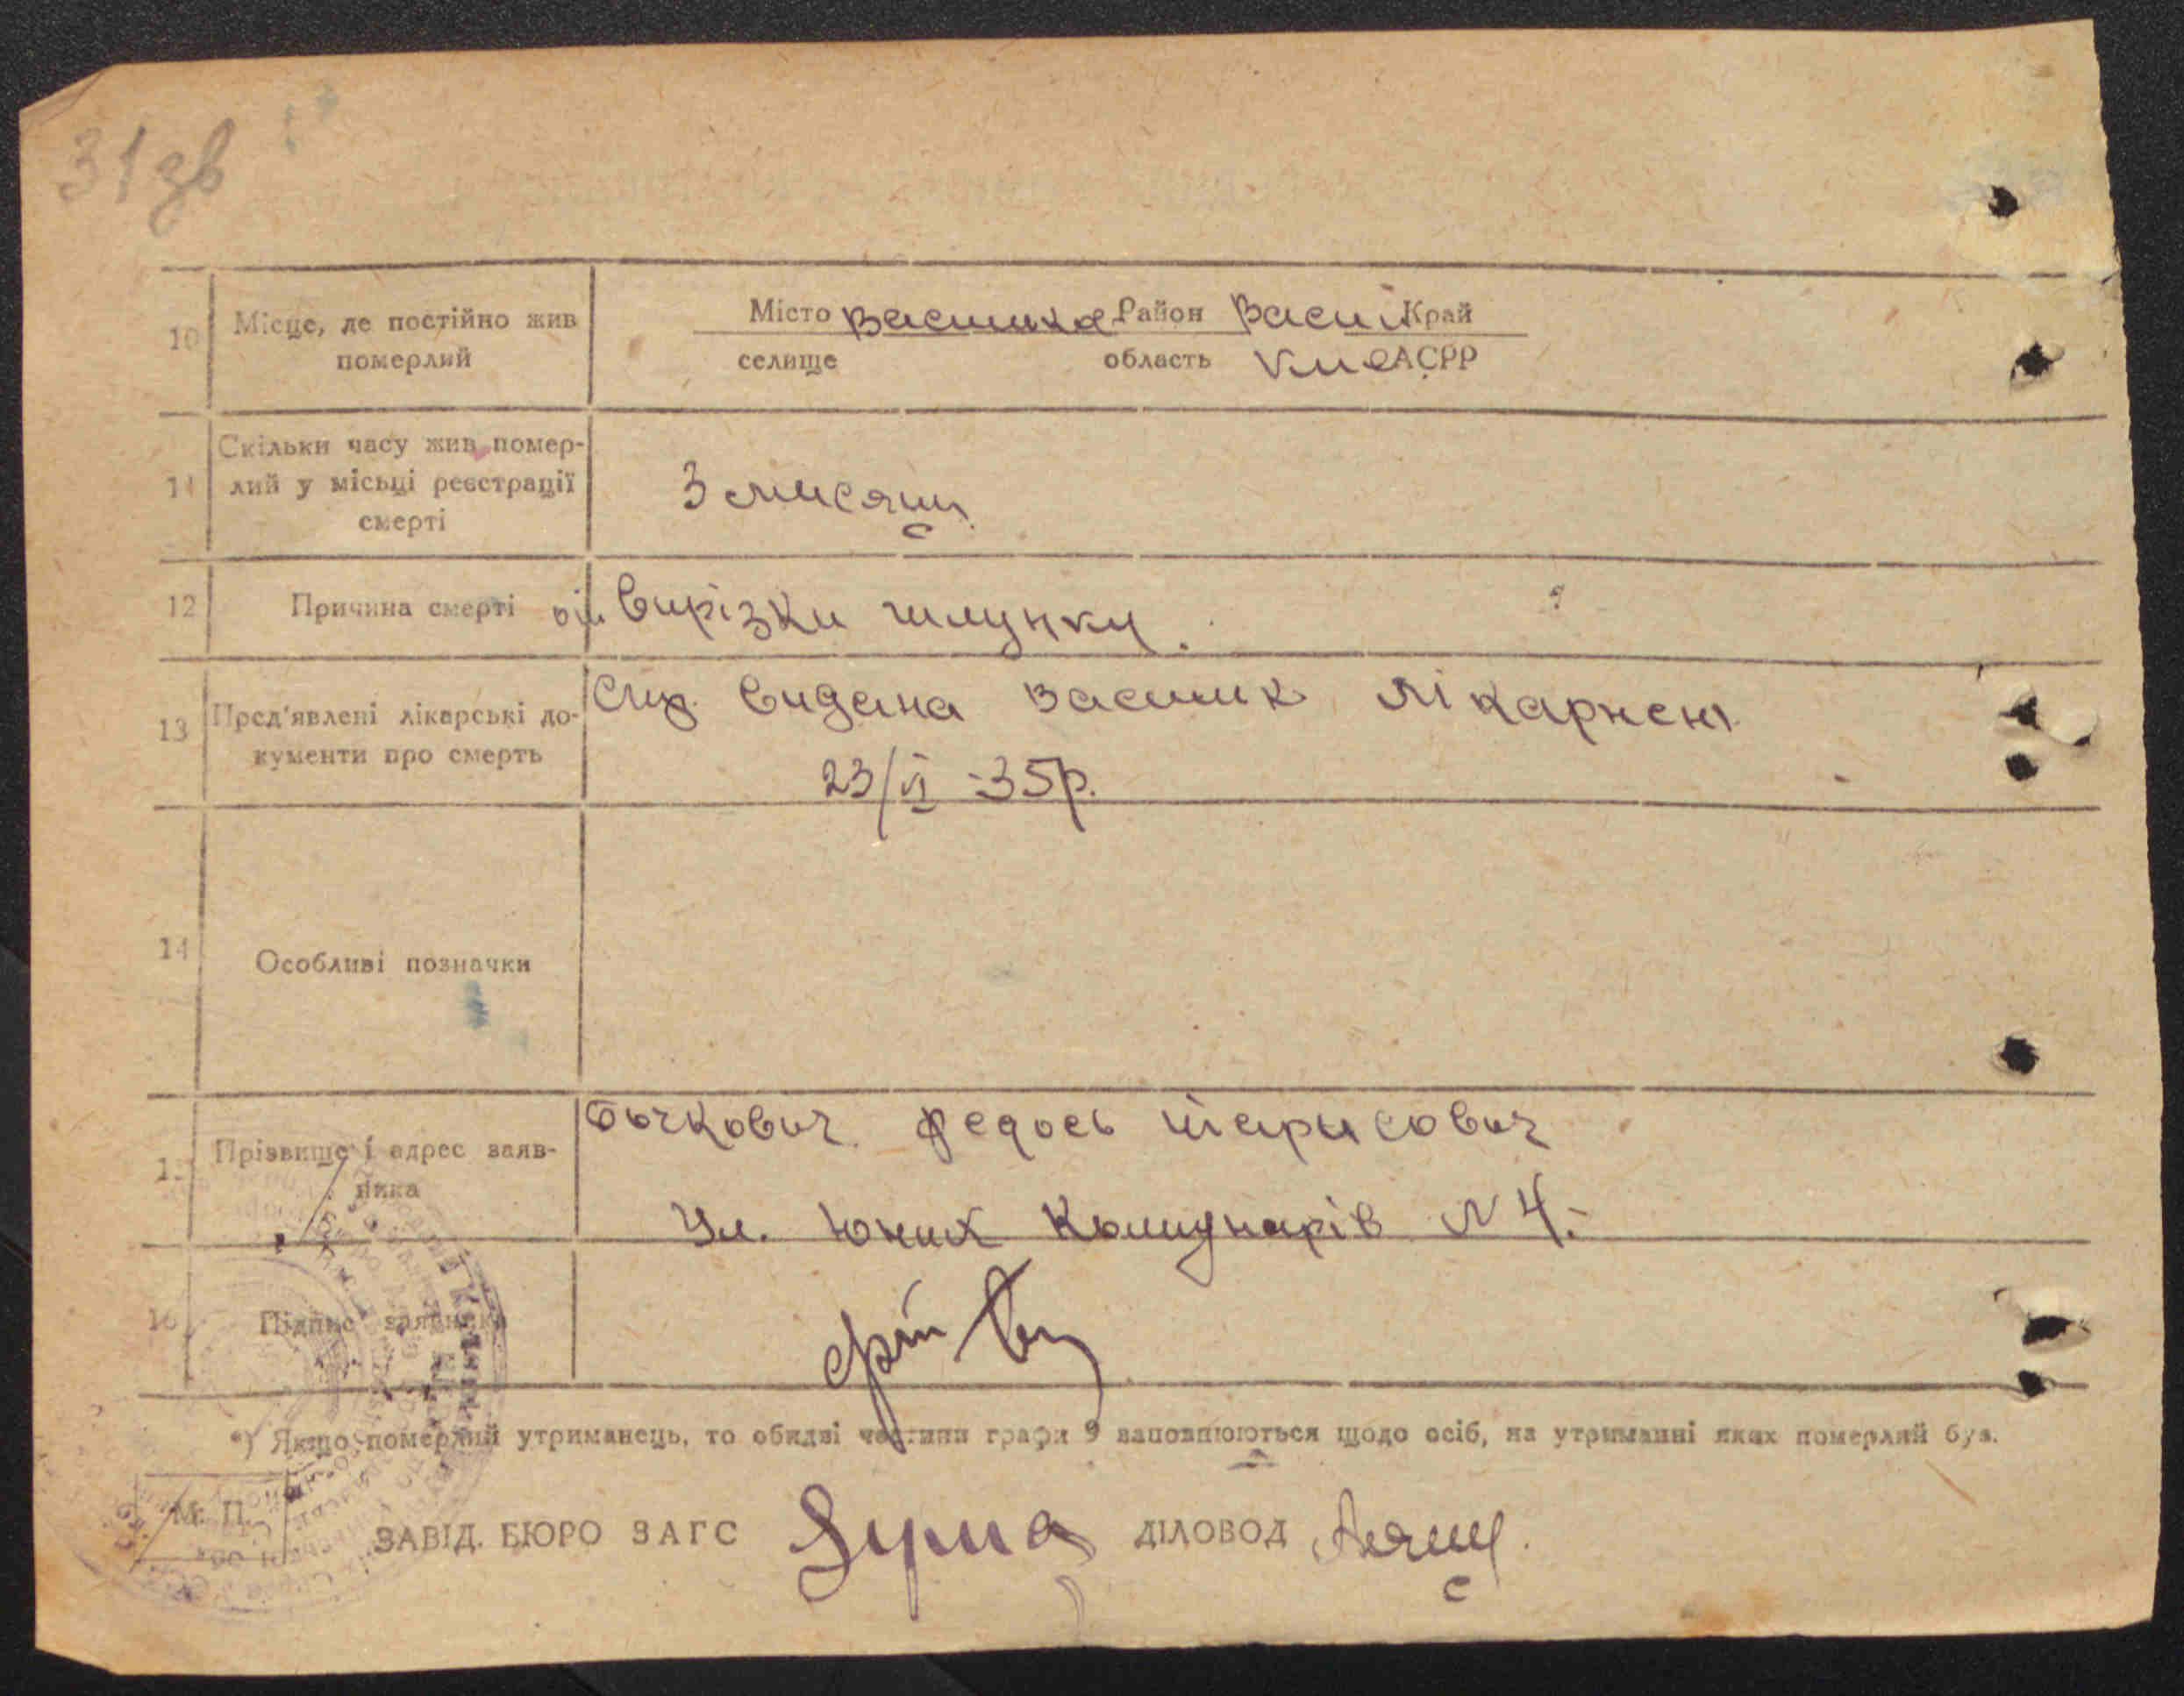 31 зв
10 Місце, де постійно жив померлий
Місто Василька Район Васил Край
селище область Киє АСРР
11 Скільки часу жив помер-
лий у місьці реєстрації
смерті
3 мисяци
12 Причина смерті від Вирізки шлунку.
13 Пред'явлені лікарські до-
кументи про смерть
видана Василик Лікарнею
23/VI -35р.
14 Особливі позначки
15 Прізвище і адрес заяв-
ника
Бычкович Федось Тарысович
Ул. Юних Комунарів N 4.-
16 Підпис заявника
*) Якщо померлий утриманець, то обидві частини графи 9 заповнюються щодо осіб, на утриманні яких померлий був.
М. П.
ЗАВІД. БЮРО ЗАГС ДІЛОВОД